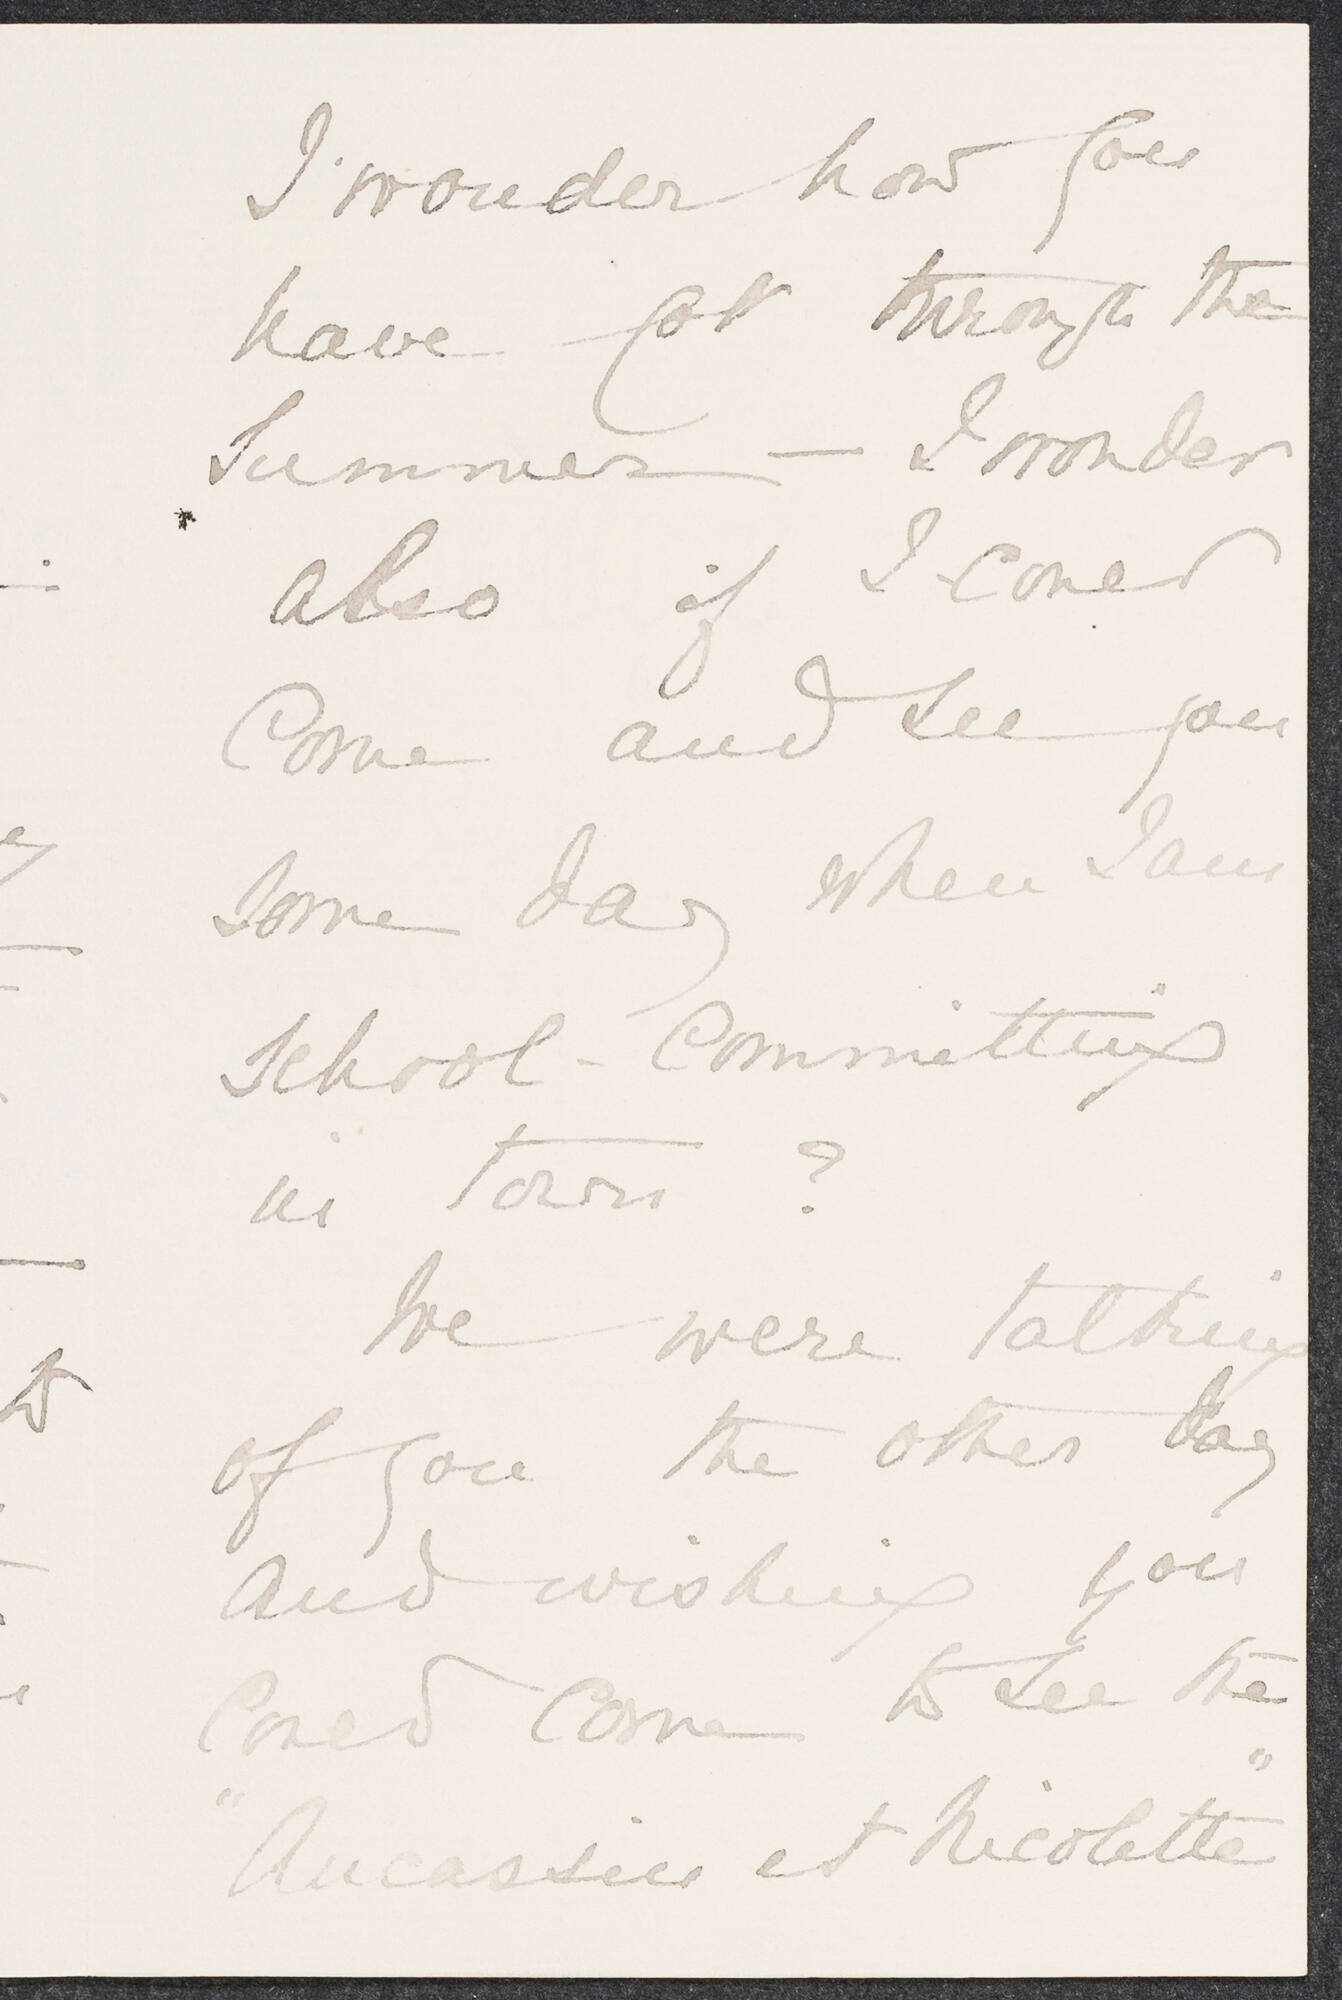 I wonder how you
have got through the
Summer — I wonder
also if I coud
Come and see you
Some day when I am
School-Committing
in town?
We were talking
of you the other day
and wishing you
Coud Come to see the
"Aucassin et Nicolette"